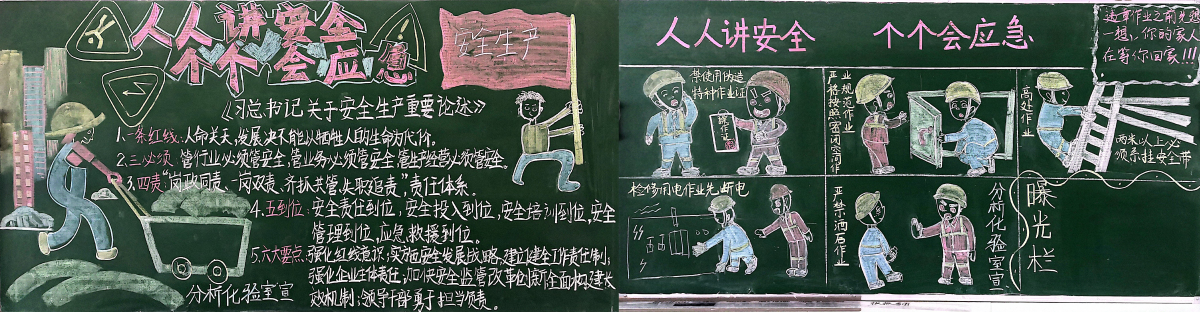 人人讲安全
个个会应急
安全生产
《习总书记关于安全生产重要论述》
1.一条红线:人命关天,发展决不能以牺牲人的生命为代价。
2.三必须:管行业必须管安全,管业务必须管安全,管生产经营必须管安全
3.四责"岗政同责、一岗双责、齐抓共管、失职追责"责任体系.
4.五到位:安全责任到位,安全投入到位,安全培训到位,安全
管理到位,应急救援到位。
5.六大要点:强化红线意识;实施安全发展战略,建立健全工作责任制;
强化企业主体责任;加快安全监管改革创新;全面构建长
效机制;领导干部勇于担当负责.
分析化验室宣
人人讲安全 个个会应急
违章作业之前先想
一想,你的家人
在等你回家!!!
禁使用伪造
特种作业证
操作证
严格按照密闭空间作
业规范作业
高处作业
两米以上必
须系挂安全带
检修用电作业先断电
严禁酒后作业
分析化验室宣
曝光栏